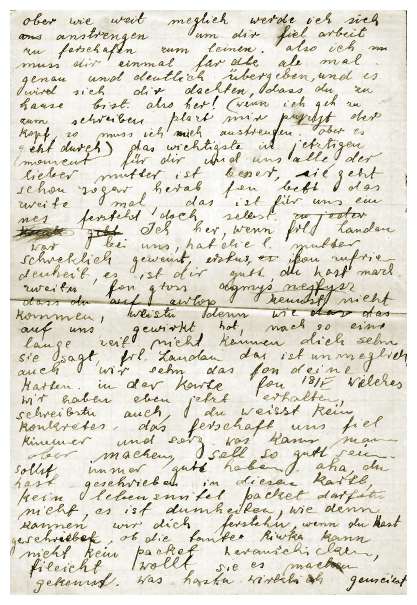 ober wie weit meglich werde ich sich
ans anstrengen um dir fiel arbeit
zu ferschafen zum leinen. also ich
muss dir einmal für alle ale mal
genau und deutlich übergeben, und es
wird sich dir dachten, dass du zu
hause bist. also her! (wenn ich geh zu
zum schreiben plazt mir der
kopf, so muss ich mich anstrengen. ober es
geht durch) das wichtigste in jetzigen
moment für dir und uns alle der
lieber mutter ist beser, sie geht
schon sogar herab fon bett das
zweite mal, das ist für uns ein
nes ferstehst doch selbst.
Ich her, wenn frl. Landau
war bei uns, hat die l. mutter
schreklich geweint, erstns, es fon zufrie-
denheit, es ist dir gutt du hast mazl
zweitns fon gross
dass du auf urlop kennst nicht
kommen, weistu denn wie das
auf uns gewirkt hat, nach so eine
lange zeit nicht kennen dich sehn
sie sagt, frl. Landau das ist unmeglich
auch wir sehn das fon deine
Karten. in der Karte fon 18/V welches
wir haben eben jetzt erhalten,
schreibstu auch, du weisst kein
konkretes. das ferschaft uns fiel
kinemer und sorg. was kann man
ober machen, soll so gutt sein
sollst immer gutt haben. aha, du
hast geschrieben in diesen Kartl,
kein lebensmitel packet darfstu
nicht, es ist dumheiten, wie denn
kannen wir dich ferstehn, wenn du hast
geschriebn, ob die tante Riwka kann
nicht kein packet herausschicken,
fileicht wollt sie es machen
gekennt. was hastu wirklich gemeinst